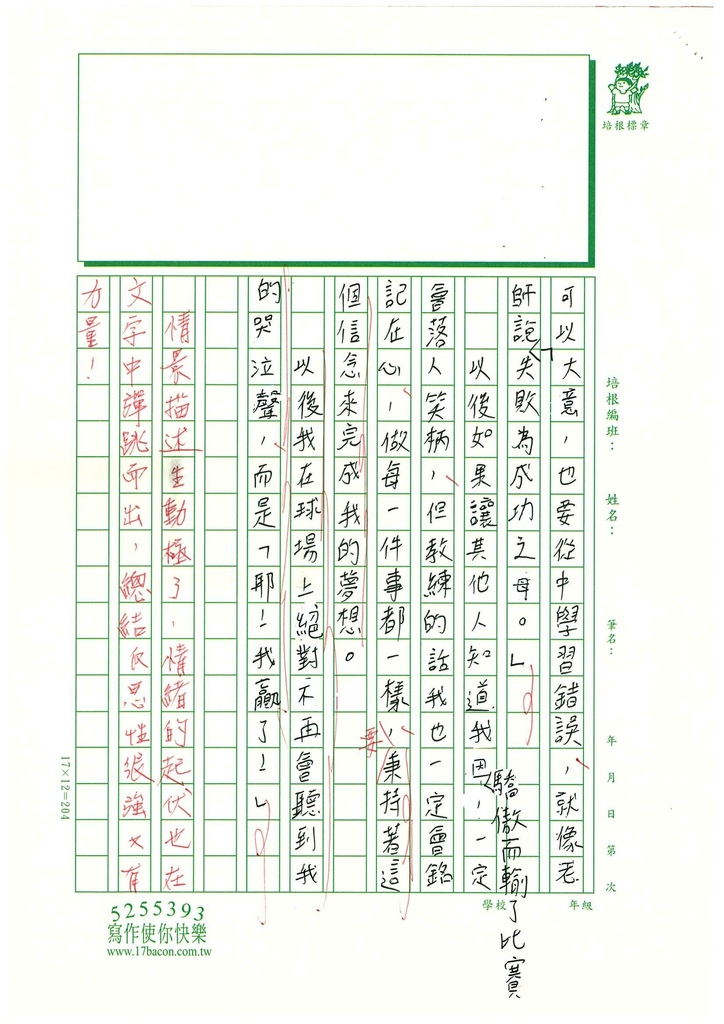 培根標章
培根編班：　姓名：　筆名：　年　月　日　第　次
學校　年級
可以大意，也要從中學習錯誤，就像老
師說「失敗為成功之母。」
以後如果讓其他人知道我因驕傲而輸了比賽，一定
會落人笑柄，但教練的話我也一定會銘
記在心，做每一件事都一樣，要秉持著這
個信念來完成我的夢想。
以後我在球場上絕對不再會聽到我
的哭泣聲，而是「耶！我贏了！」
情景描述生動極了，情緒的起伏也在
文字中彈跳而出，總結反思性很強又有
力量！
17×12=204
5255393
寫作使你快樂
www.17bacon.com.tw